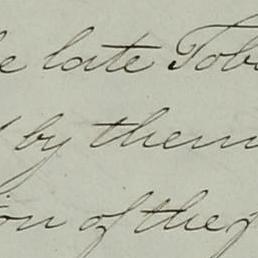 late Tob
by them
ion of the